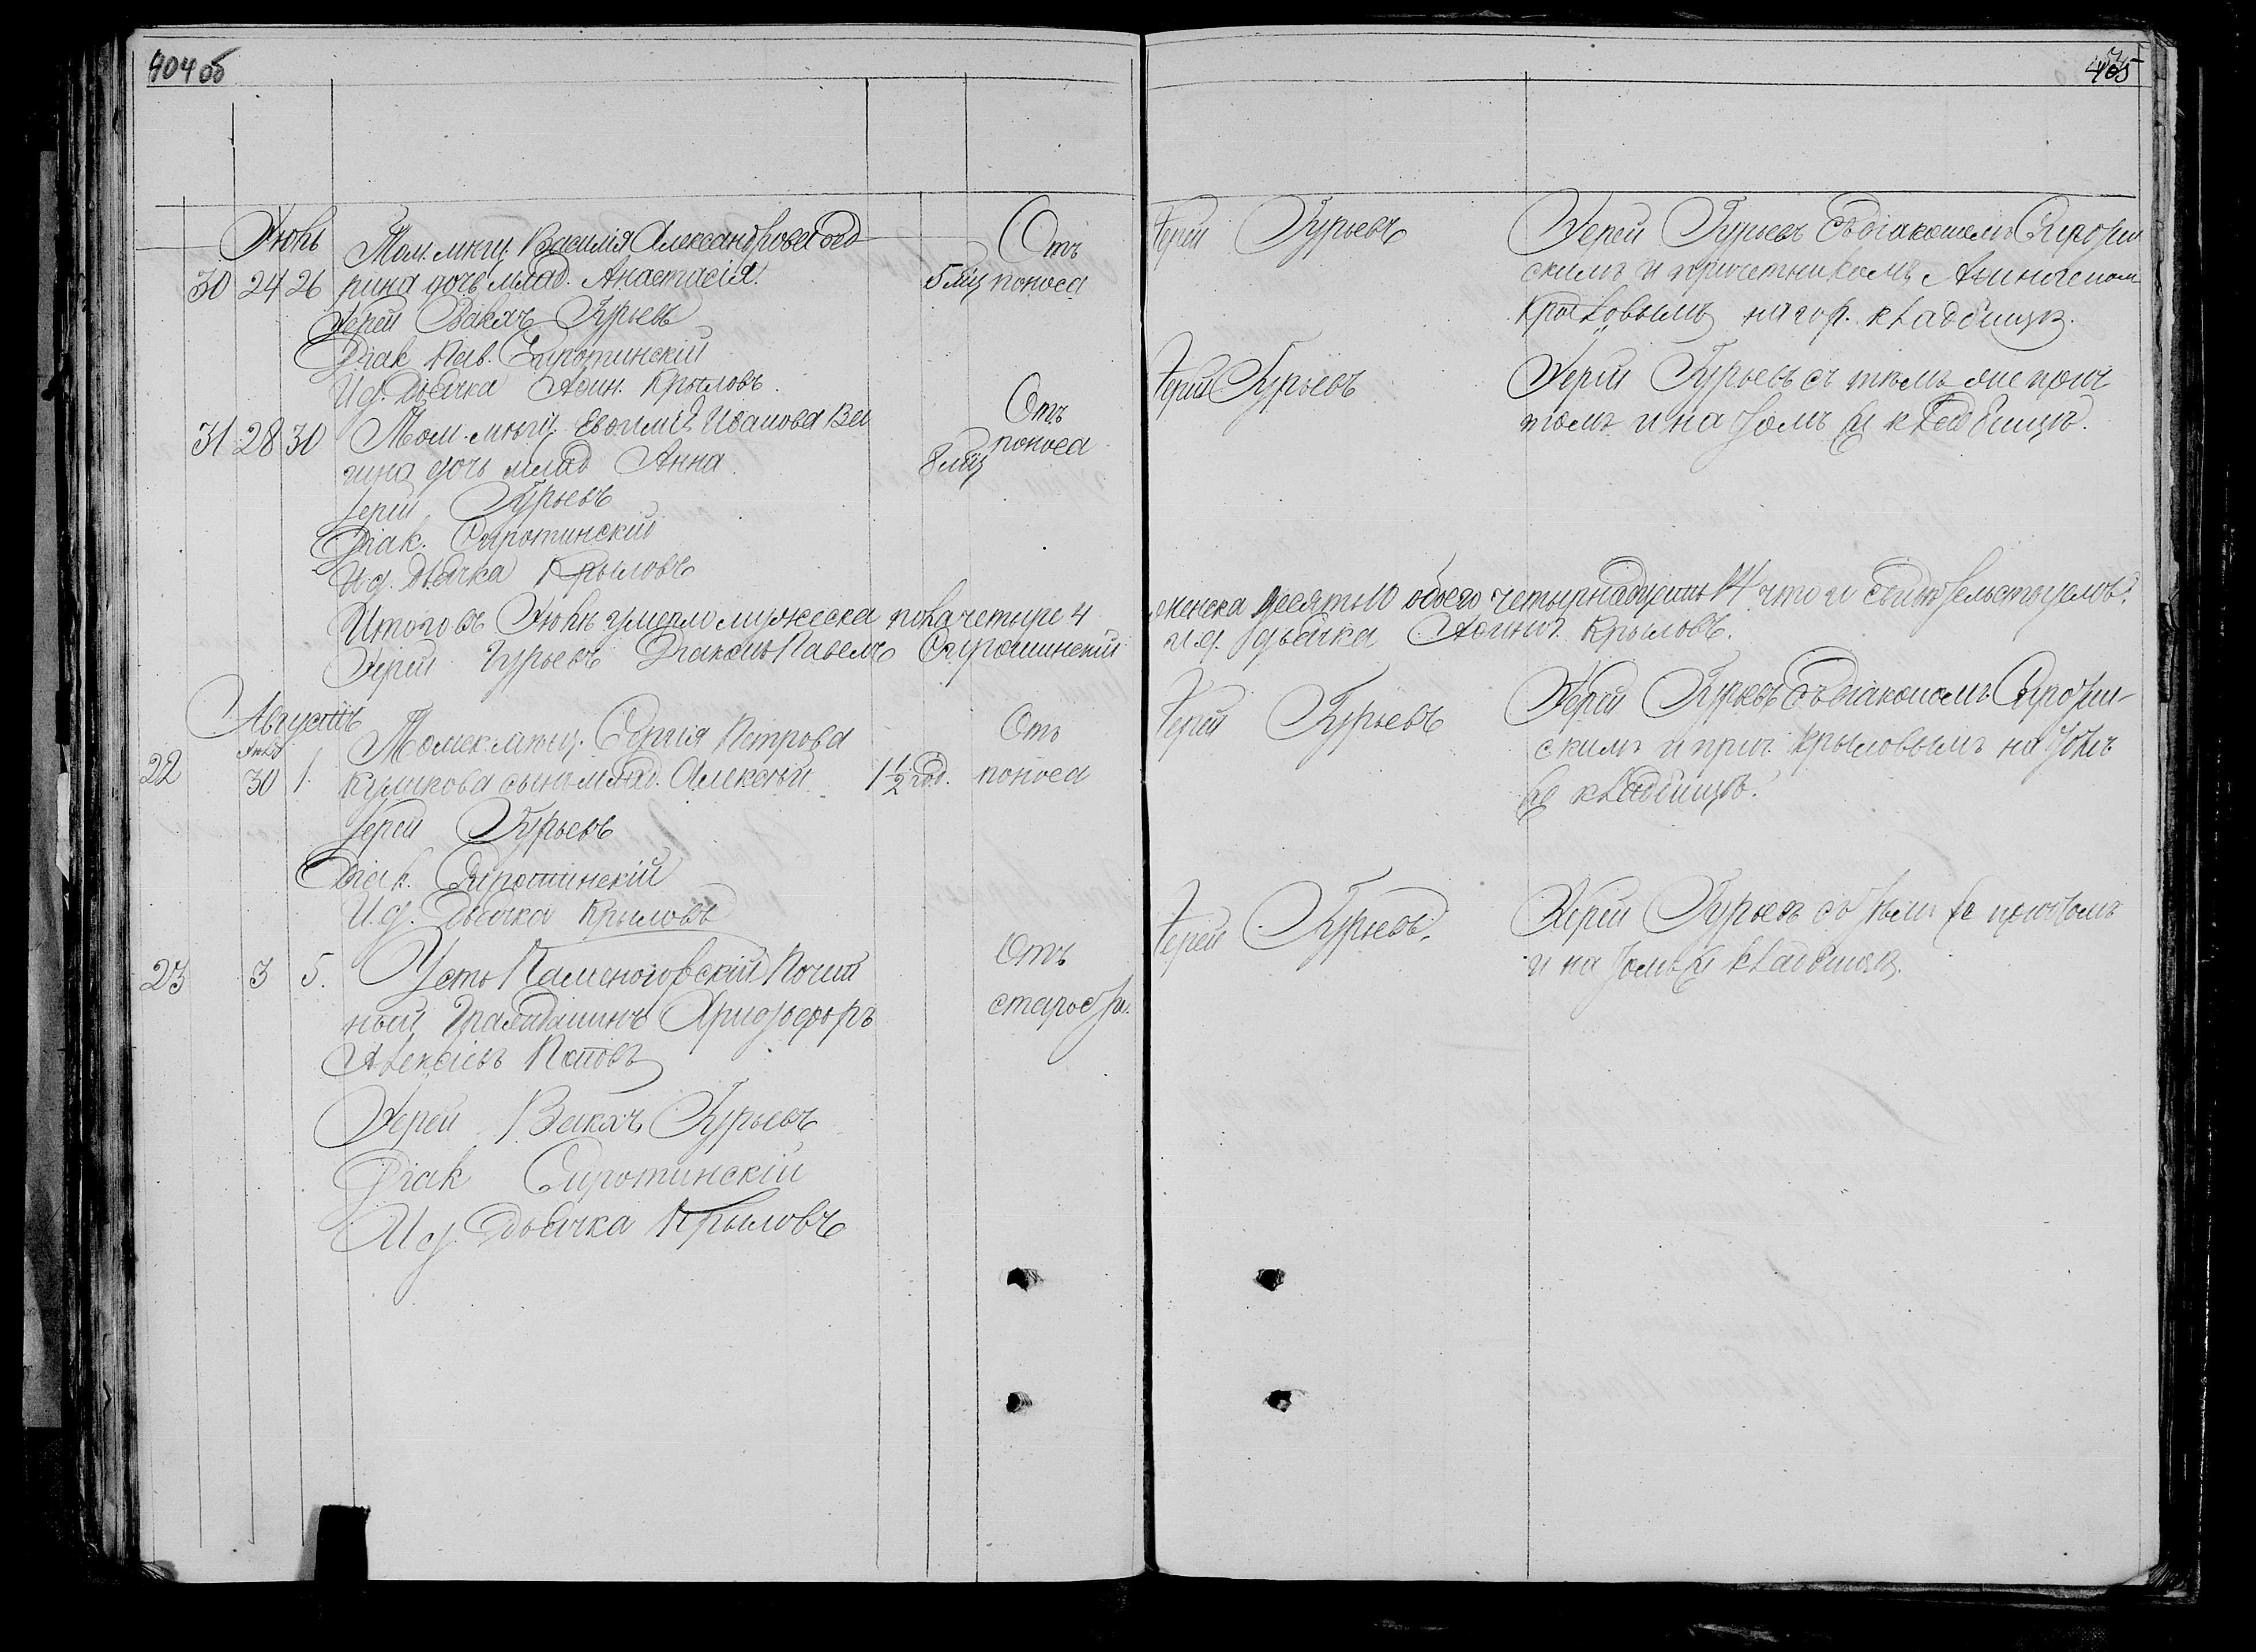 404 об
Июль
Том. мѣщ. Василія Александрова
30 24 26 рина дочь млад. Анастасія. 5 мѣц Отъ поноса
Іерей Вакхъ Гурьевъ
Діак. Пав. Сиротинскій
И. д. Дьячка Аѳин. Крыловъ.
31 28 30 Том. мѣщ. Евѳимія Иванова Ве
гина дочь млад Анна. 8 мѣц Отъ поноса
Іерей Гурьевъ
Діак. Сиротинскій
И д. Дьячка Крыловъ
Итого въ Июлѣ умерло мужеска пола четыре 4
Іерей Гурьевъ Діаконъ Павелъ Сиротинскій
Августъ
Июля
Томск. мѣщ. Сергія Петрова
22 30 1. Куликова сынъ млад. Алексѣй 1 1/2 год. Отъ поноса
Іерей Гурьевъ
Діак. Сиротинскій
И. д. Дьячка Крыловъ
23 3 5. Усть Каменогорскій Почет
ный Гражданинъ Христофоръ
Алексѣевъ Поповъ Отъ старости.
Іерей Вакхъ Гурьевъ
Діак Сиротинскій
И д. Дьячка Крыловъ
405
Іерей Гурьевъ
Іерей Гурьевъ съ діакономъ Сироти
скимъ и причетникомъ
Крыловымъ на гор. кладбищѣ.
Іерей Гурьевъ
Іерей Гурьевъ съ тѣмъ же прич
томъ и на томъ же кладбищѣ.
женска десять 10 обоего четырнадцать 14 что и свидѣтельствуемъ.
и д. дьячка Крыловъ.
Іерей Гурьевъ
Іерей Гурьевъ съ діакономъ Сироти-
скимъ и прич. Крыловымъ на томъ
же кладбищѣ.
Іерей Гурьевъ.
Іерей Гурьевъ съ тѣмъ же причтомъ
и на томъ же кладбищѣ.